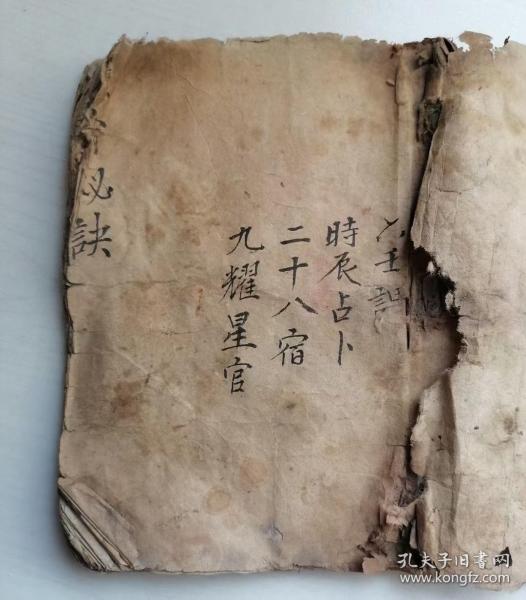 六壬課
時辰占卜
二十八宿
九耀星官
秘訣
孔夫子旧書网
www.kongfz.com